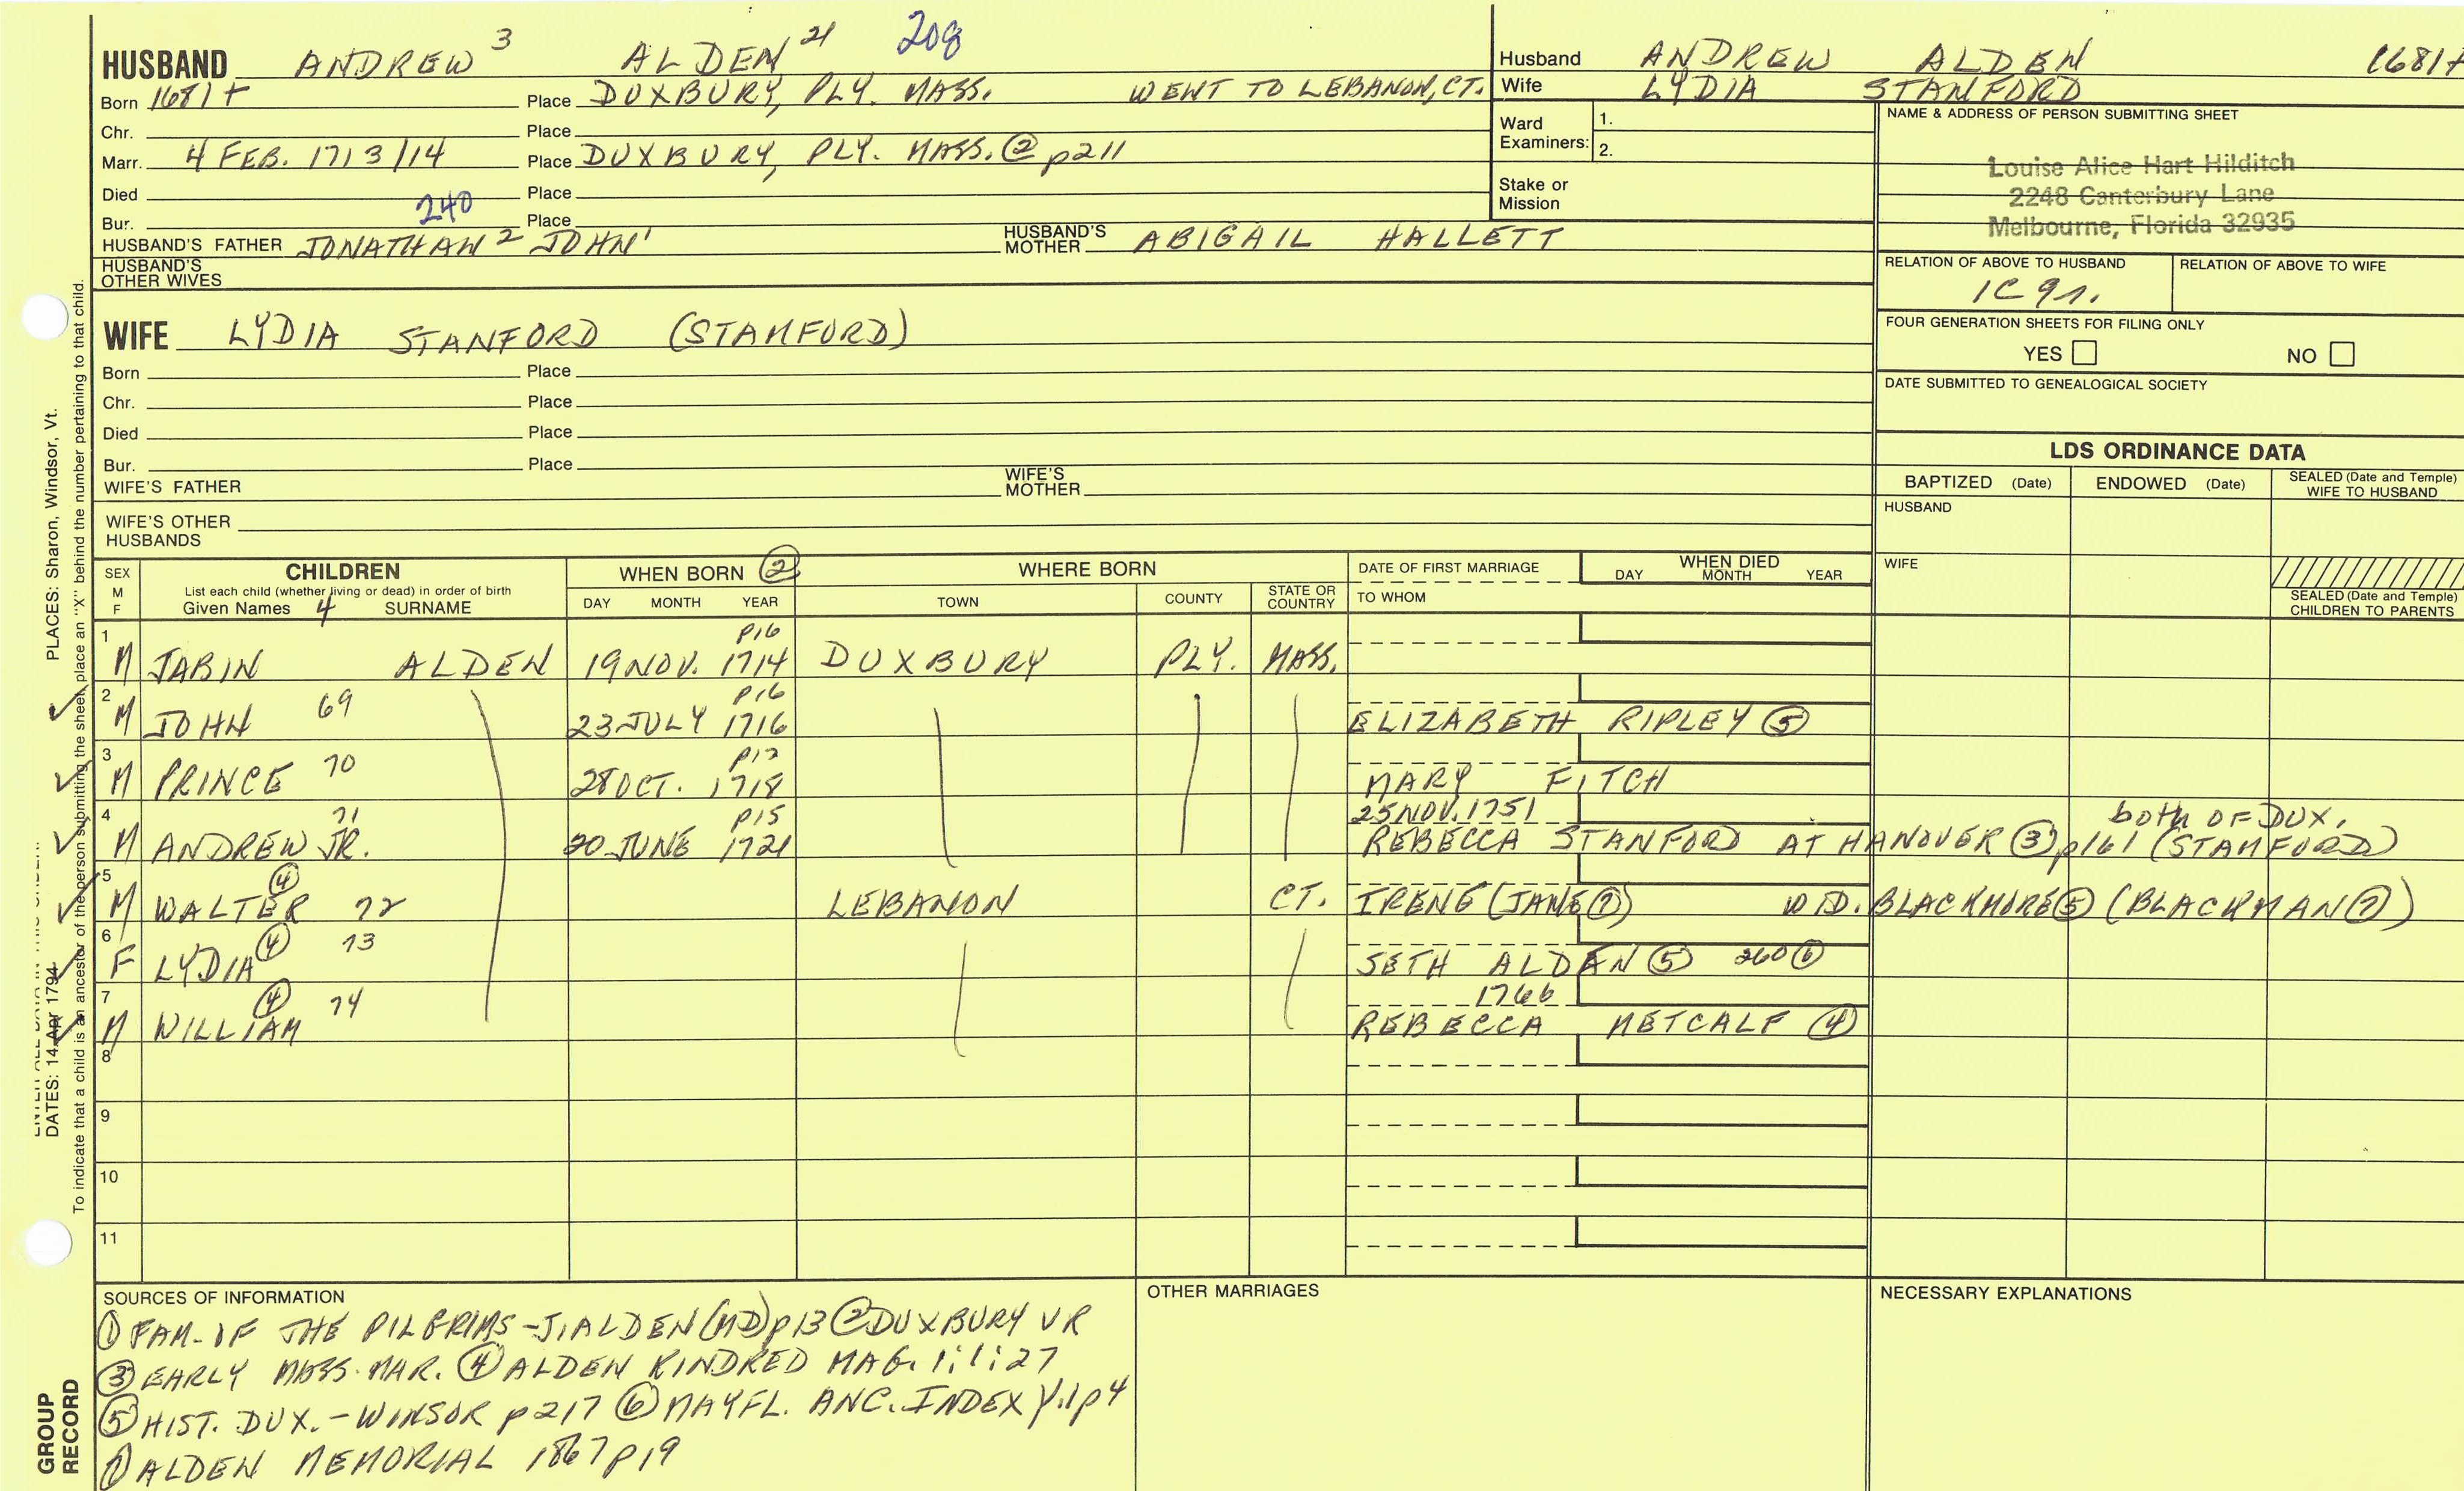 HUSBAND ANDREW 3 ALDEN 21 208
Born 1681+ Place DUXBURY, PLY. MASS. WENT TO LEBANON, CT.
Chr. Place
Marr. 4 FEB. 1713/14 Place DUXBURY, PLY. MASS. ② p211
Died Place
Bur. 240 Place
HUSBAND'S FATHER JONATHAN 2 JOHN 1 HUSBAND'S MOTHER ABIGAIL HALLETT
HUSBAND'S OTHER WIVES
WIFE LYDIA STANFORD (STAMFORD)
Born Place
Chr. Place
Died Place
Bur. Place
WIFE'S FATHER WIFE'S MOTHER
WIFE'S OTHER HUSBANDS
Husband ANDREW ALDEN 1681+
Wife LYDIA STANFORD
Ward Examiners: 1.
2.
Stake or Mission
NAME & ADDRESS OF PERSON SUBMITTING SHEET
Louise Alice Hart Hilditch
2248 Canterbury Lane
Melbourne, Florida 32935
RELATION OF ABOVE TO HUSBAND RELATION OF ABOVE TO WIFE
1C 9r.
FOUR GENERATION SHEETS FOR FILING ONLY
YES NO
DATE SUBMITTED TO GENEALOGICAL SOCIETY
LDS ORDINANCE DATA
BAPTIZED (Date) ENDOWED (Date) SEALED (Date and Temple) WIFE TO HUSBAND
HUSBAND
WIFE
SEALED (Date and Temple) CHILDREN TO PARENTS
SEX M F CHILDREN WHEN BORN ② WHERE BORN DATE OF FIRST MARRIAGE WHEN DIED
List each child (whether living or dead) in order of birth
Given Names 4 SURNAME DAY MONTH YEAR TOWN COUNTY STATE OR COUNTRY TO WHOM DAY MONTH YEAR
1 p16
M JABIN ALDEN 19 NOV. 1714 DUXBURY PLY. MASS.
2 p16
M JOHN 69 23 JULY 1716 ELIZABETH RIPLEY ⑤
3
M PRINCE 70 28 OCT. 1718 MARY FITCH
4 71 p15 25 NOV. 1751 both OF DUX.
M ANDREW JR. 20 JUNE 1721 REBECCA STANFORD AT HANOVER ③ p161 (STAMFORD)
5 ④
M WALTER 72 LEBANON CT. IRENE (JANE ⑦) WID. BLACKMORE ⑤ (BLACKMAN ⑦)
6 ④ 73
F LYDIA SETH ALDEN ⑤ 260 ⑥
7 ④ 74 1766
M WILLIAM REBECCA METCALF ④
8
9
10
11
SOURCES OF INFORMATION OTHER MARRIAGES NECESSARY EXPLANATIONS
① FAM. OF THE PILGRIMS - J. ALDEN (MD) p13 ② DUXBURY VR
③ EARLY MASS. MAR. ④ ALDEN KINDRED MAG. 1:1:27
⑤ HIST. DUX. - WINSOR p217 ⑥ MAYFL. ANC. INDEX V.1 p4
⑦ ALDEN MEMORIAL 1867 p19
PLACES: Sharon, Windsor, Vt.
DATES: 14 Apr 1794
To indicate that a child is an ancestor of the person submitting the sheet, place an "X" behind the number pertaining to that child.
GROUP
RECORD